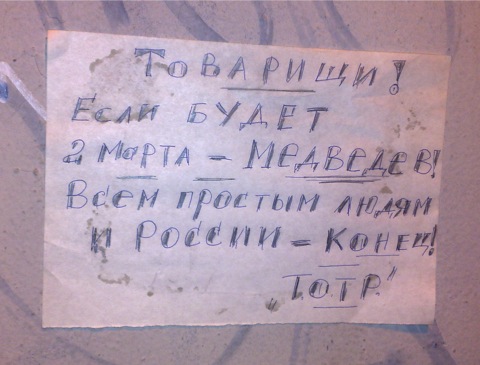 Товарищи!
Если БУДЕТ
2 марта - МЕДВЕДЕВ!
Всем простым людям
и России - КОНЕЦ!
„ТОТР"